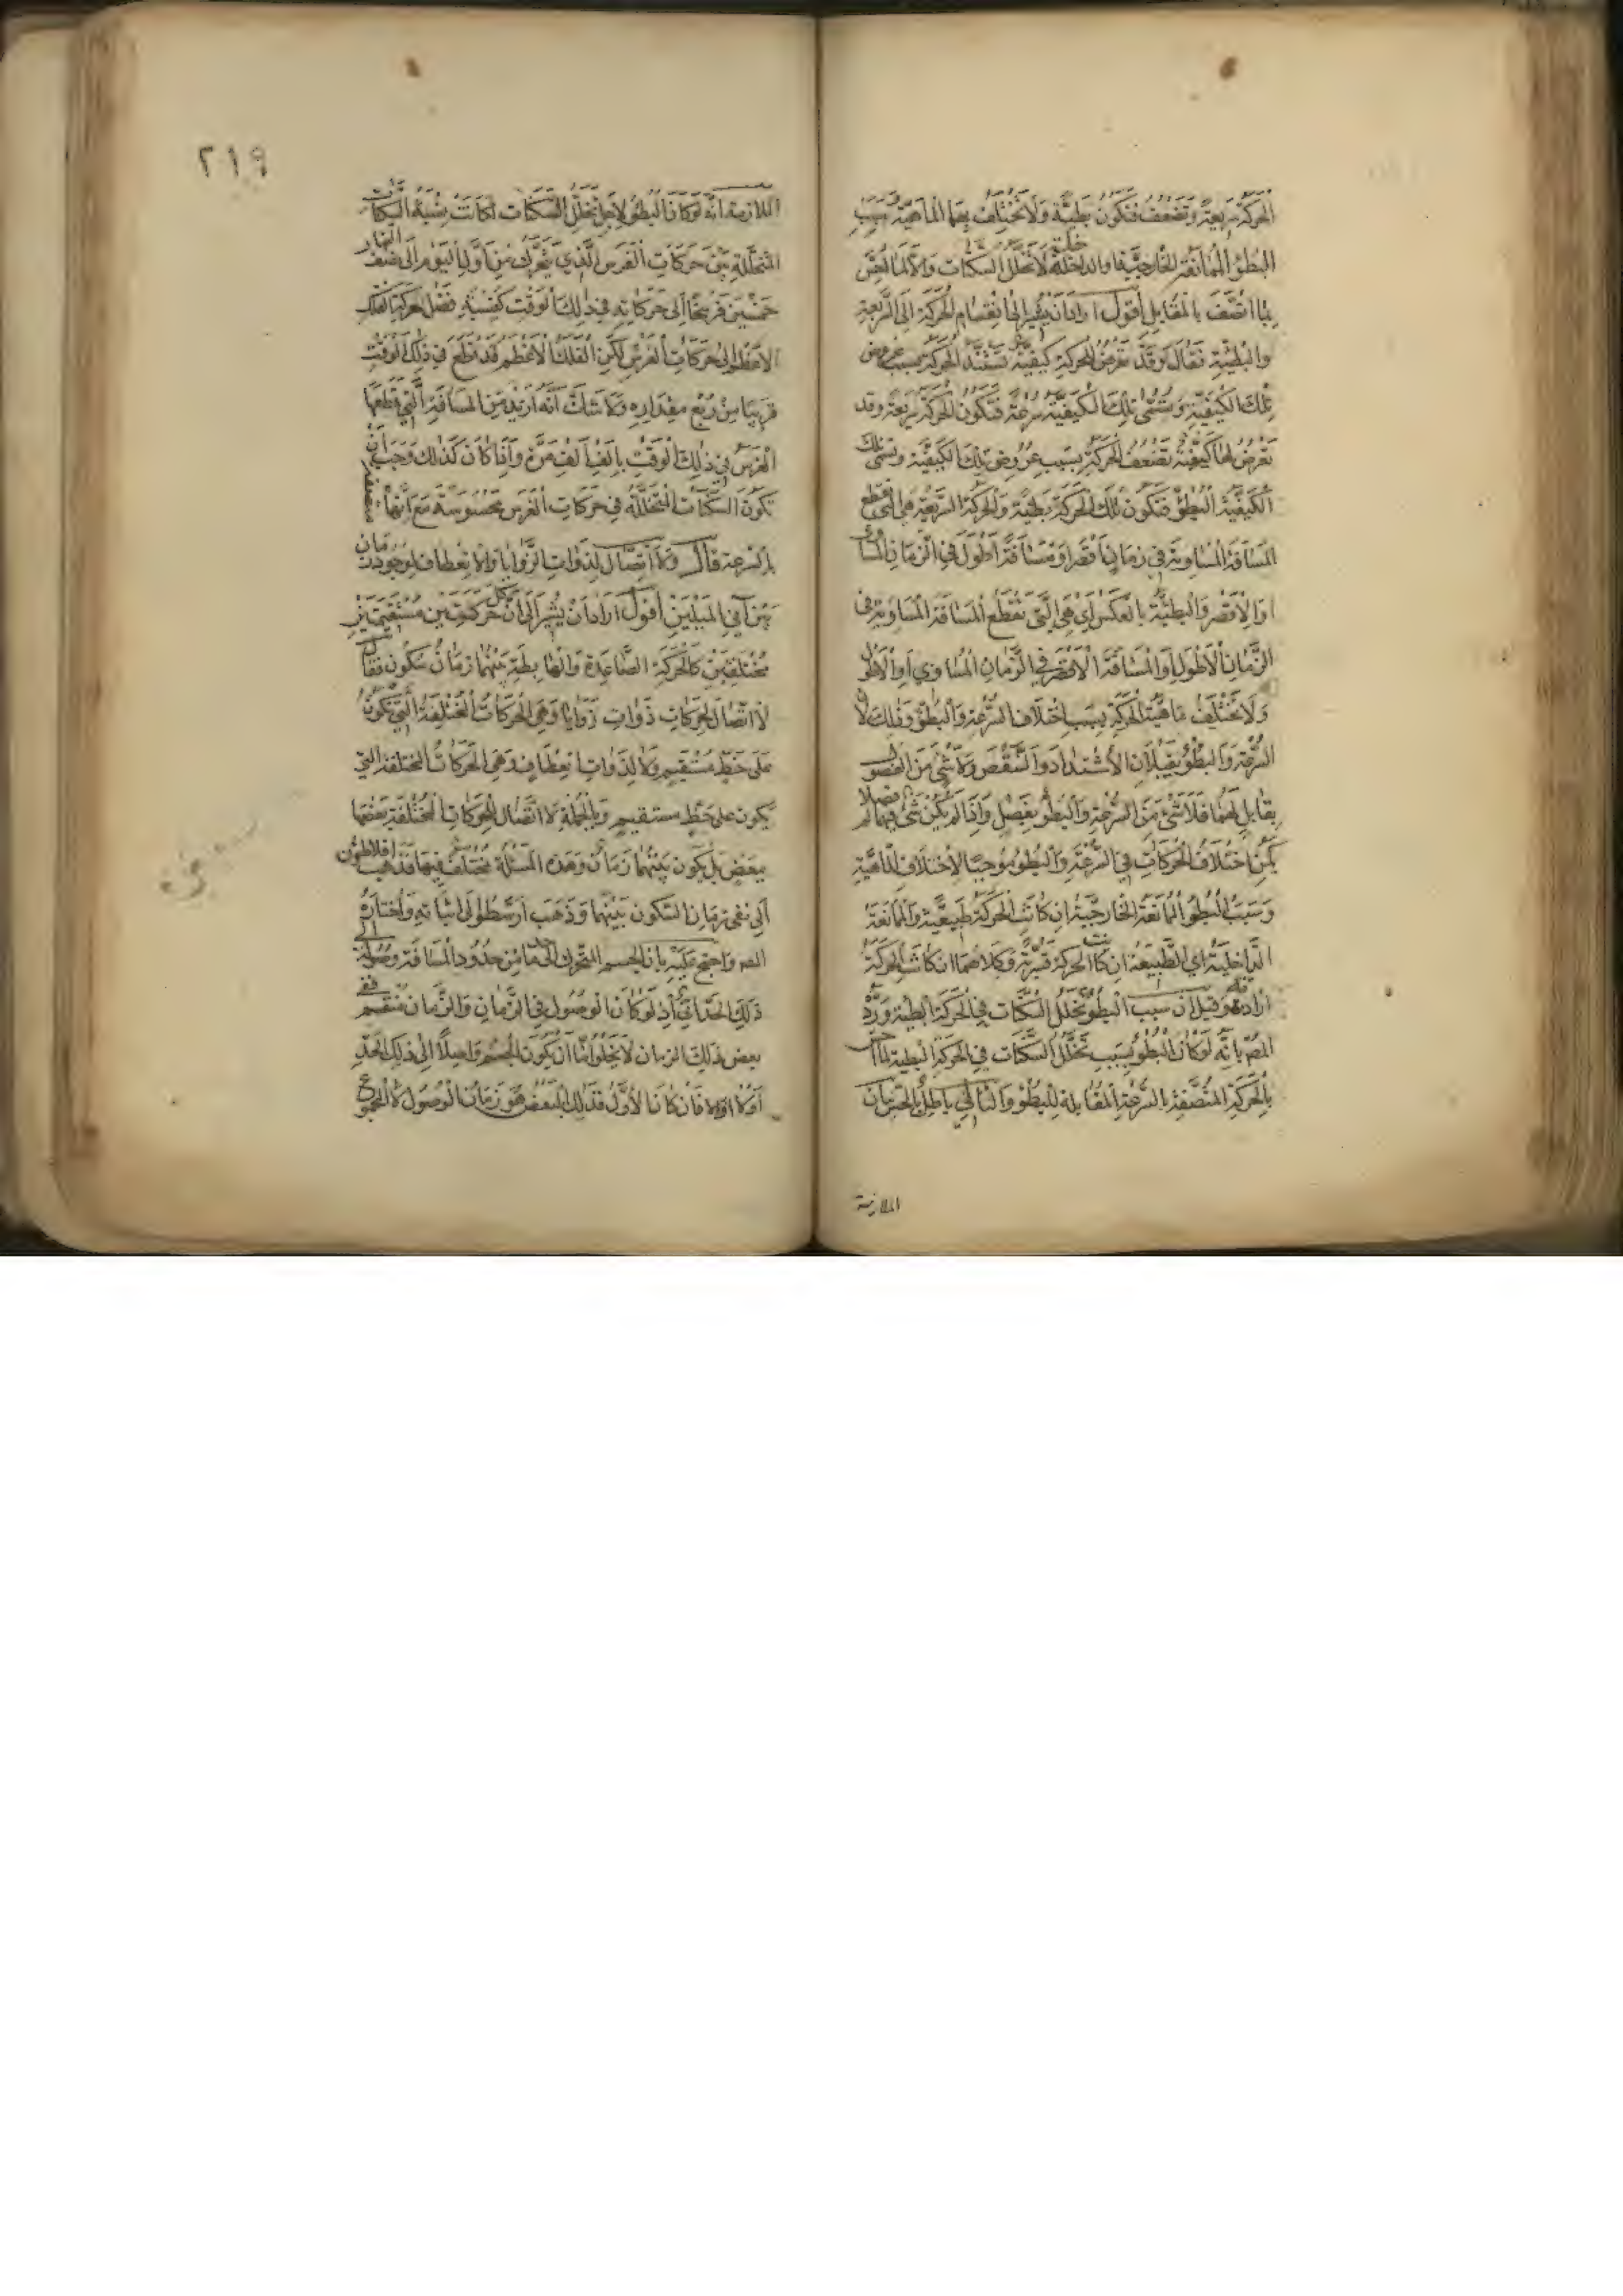 الحركة سريعة وتضعف فتكون بطيئة ولا تختلف بهما الماهية وسبب
البطؤ الممانعة الخارجية او الداخلية لا تخلل السكنات والا لما احس
بما اتصف بالمقابل اقول اراد ان يشير الى انقسام الحركة الى السريعة
والبطيئة فقال وقد تعرض للحركة كيفية تشتد الحركة بسبب عروض
تلك الكيفية وتسمى تلك الكيفية سرعة فتكون الحركة سريعة وقد
تعرض لها كيفية تضعف الحركة بسبب عروض تلك الكيفية وتسمى تلك
الكيفية البطؤ فتكون تلك الحركة بطيئة والحركة السريعة هي التي تقطع
المسافة المساوية في زمان اقصر او مسافة اطول في الزمان المساوي
او الاقصر والبطيئة بالعكس اي هي التي تقطع المسافة المساوية في
الزمان الاطول او المسافة الاقصر في الزمان المساوي او الاطول
ولا تختلف ماهية الحركة بسبب اختلاف السرعة والبطؤ وذلك لان
السرعة والبطؤ يقبلان الاشتداد والتنقص ولا شئ من الفصول
بقابل لهما فلا شئ من السرعة والبطؤ بفصل واذا لم يكن شئ فيهما فصلا لم
يكن اختلاف الحركات في السرعة والبطؤ موجبا لاختلاف الماهية
وسبب البطؤ الممانعة الخارجية ان كانت الحركة طبيعية والممانعة
الداخلية اي الطبيعة ان كانت الحركة قسرية وكلاهما ان كانت الحركة
ارادية وقيل ان سبب البطؤ تخلل السكنات في الحركة البطيئة ورده
المص بانه لو كان البطؤ بسبب تخلل السكنات في الحركة البطيئة لما احس
بالحركة المتصفة بالسرعة المقابلة للبطؤ والتالي باطل بالحس بيان
الملازمة
٢١٩
الملازمة انه لو كان البطؤ لاجل تخلل السكنات لكانت نسبة السكنات
المتخللة بين حركات الفرس الذي يتحرك من اول اليوم الى نصف النهار
خمسين فرسخا الى حركاته في ذلك الوقت كنسبة فضل حركة الفلك
الاعظم الى حركات الفرس لكن الفلك الاعظم قد قطع في ذلك الوقت
قريبا من ربع مقداره ولا شك انه ازيد من المسافة التي قطعها
الفرس في ذلك الوقت بالف الف مرة واذا كان كذلك وجب ان
تكون السكنات المتخللة في حركات الفرس محسوسة مع انها
بالسرعة قال ولا اتصال لذوات الزوايا والانعطاف لوجود زمان
بين آني الميلين اقول اراد ان يشير الى ان كل حركتين مستقيمتين
مختلفتين كالحركة الصاعدة والهابطة بينهما زمان سكون فقال
لا اتصال لحركات ذوات زوايا وهي الحركات المختلفة التي تكون
على خط مستقيم ولا لذوات انعطاف وهي الحركات المختلفة التي
يكون على خط مستقيم وبالجملة لا اتصال للحركات المختلفة بعضها
ببعض بل يكون بينهما زمان وهذه المسئلة مختلف فيها فذهب افلاطون
الى نفي زمان السكون بينهما وذهب ارسطو الى اثباته واختاره
المص واحتج عليه بان الجسم المتحرك الى حد ما من حدود المسافة وصوله الى
ذلك الحد آني اذ لو كان الوصول في الزمان والزمان منقسم ففي
بعض ذلك الزمان لا يخلو اما ان يكون الجسم واصلا الى ذلك الحد
اولا فان كان الاول فذلك البعض هو زمان الوصول لا المجموع